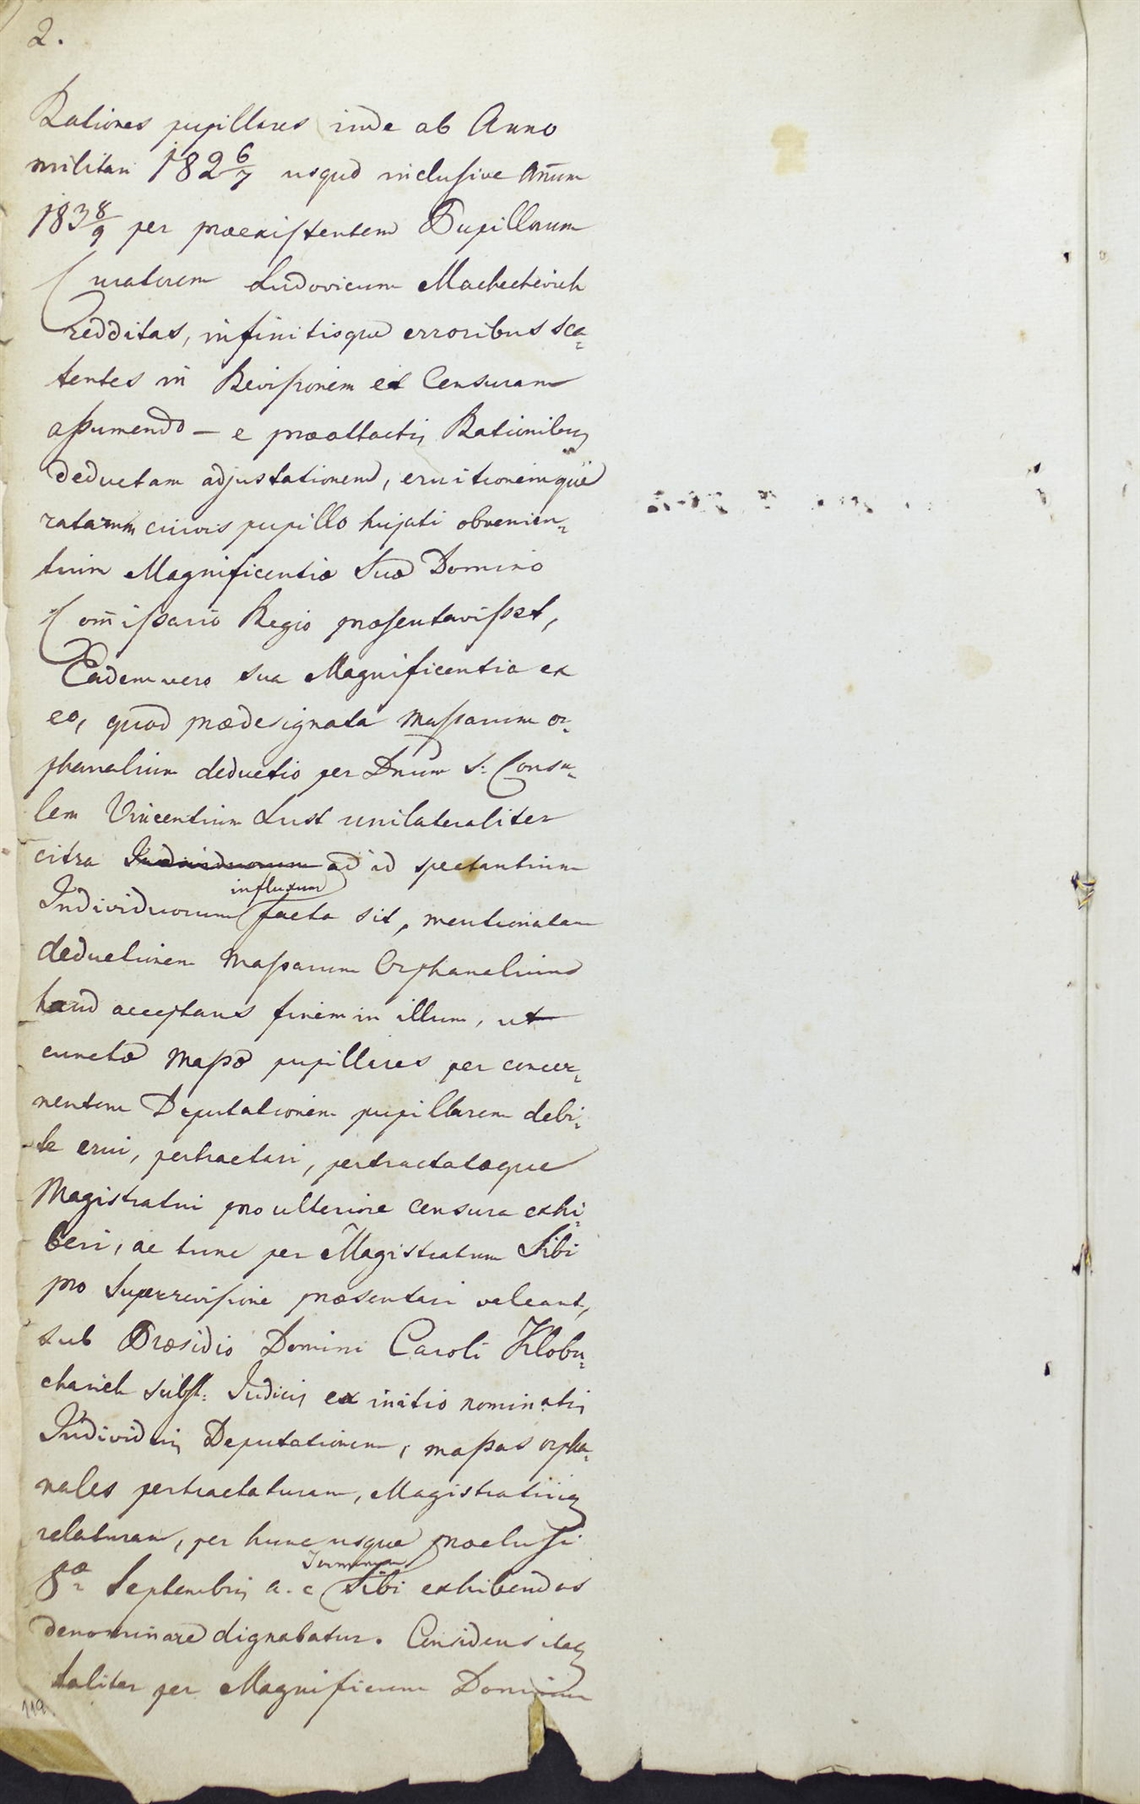 2.
Rationes pupillares inde ab Anno
militari 182 6/7 usque inclusive Añum
183 8/9 per praeexistentem Pupillarum
Curatorem Ludovicum Machechevich
redditas, infinitisque erroribus sca=
tentes in Revisionem et Censuram
assumendo – e praeattactis Rationibus
deductam adjustationem, eruitionemque
ratarum cuivis pupillo hujati obvenien=
tium Magnificentiae Suae Domino
Com̃issario Regio praesentavisset,
Eadem vero sua Magnificentia ex
eo, quod praedesignata Massarum or=
phanalium deductio per Dnum S: Consu=
lem Vincentium Lust unilateraliter
citra Individuorum ad id spectantium
influxum
Individuorum facta sit, mentionatam
deductionem Massarum Orphanalium
haud acceptans finem in illum, ut
cunctae Massae pupillares per concer=
nentem Deputationem pupillarem debi=
te erui, pertractari, pertractataeque
Magistratui pro ulteriore censura exhi=
beri, ac tunc per Magistratum Sibi
pro Superrevisione praesentari valeant,
sub Praesidio Domini Caroli Klobu=
charich subst: Judicis ex initio nominatis
Individuis Deputationem, massas orpha=
nales pertractaturam, Magistratuiq
relaturam, per hunc usque praeclusi
Terminum
8ae Septembris a. c Sibi exhibendas
denominare dignabatur. Considens itaq
taliter per Magnificum Dominum
119.